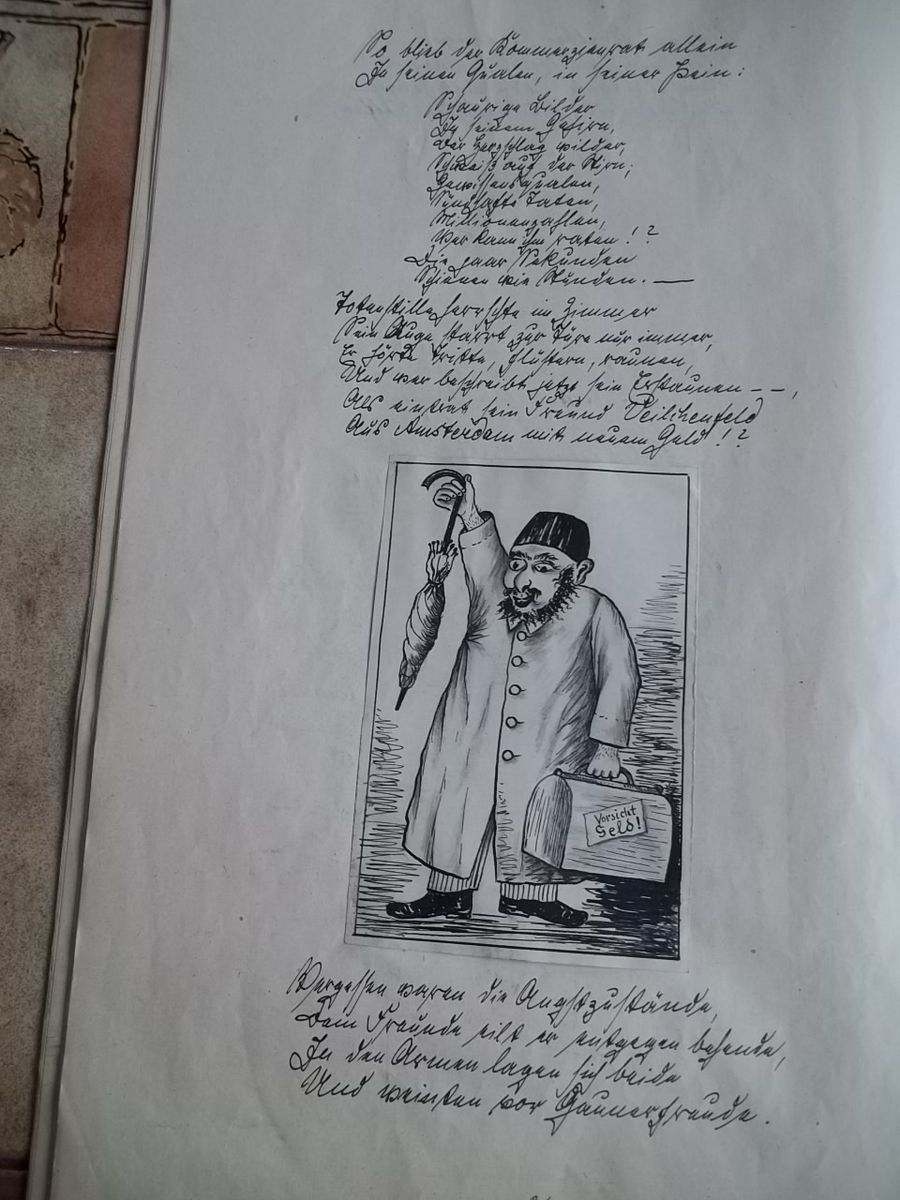 So blieb der Kommerzienrat allein
In seinen Qualen, in seiner Pein:
Schaurige Bilder
In seinem Gehirn,
Der Herzschlag wilder,
Schweiß auf der Stirn;
Gewissensqualen,
Sündhafte Taten,
Millionenzahlen,
Wer kann ihm raten!?
Die paar Sekunden
Schienen wie Stunden. —
Totenstille herrschte im Zimmer
Sein Auge starrt zur Türe nur immer,
Er hörte Tritte, Flüstern, raunen,
Und wer beschreibt jetzt sein Erstaunen — —,
Als eintrat sein Freund Veilchenfeld
Aus Amsterdam mit neuem Geld!?
Vorsicht
Geld!
Vergessen waren die Angstzustände,
Dem Freunde eilt er entgegen behende,
In den Armen lagen sich beide
Und weinten vor Gaunerfreude.